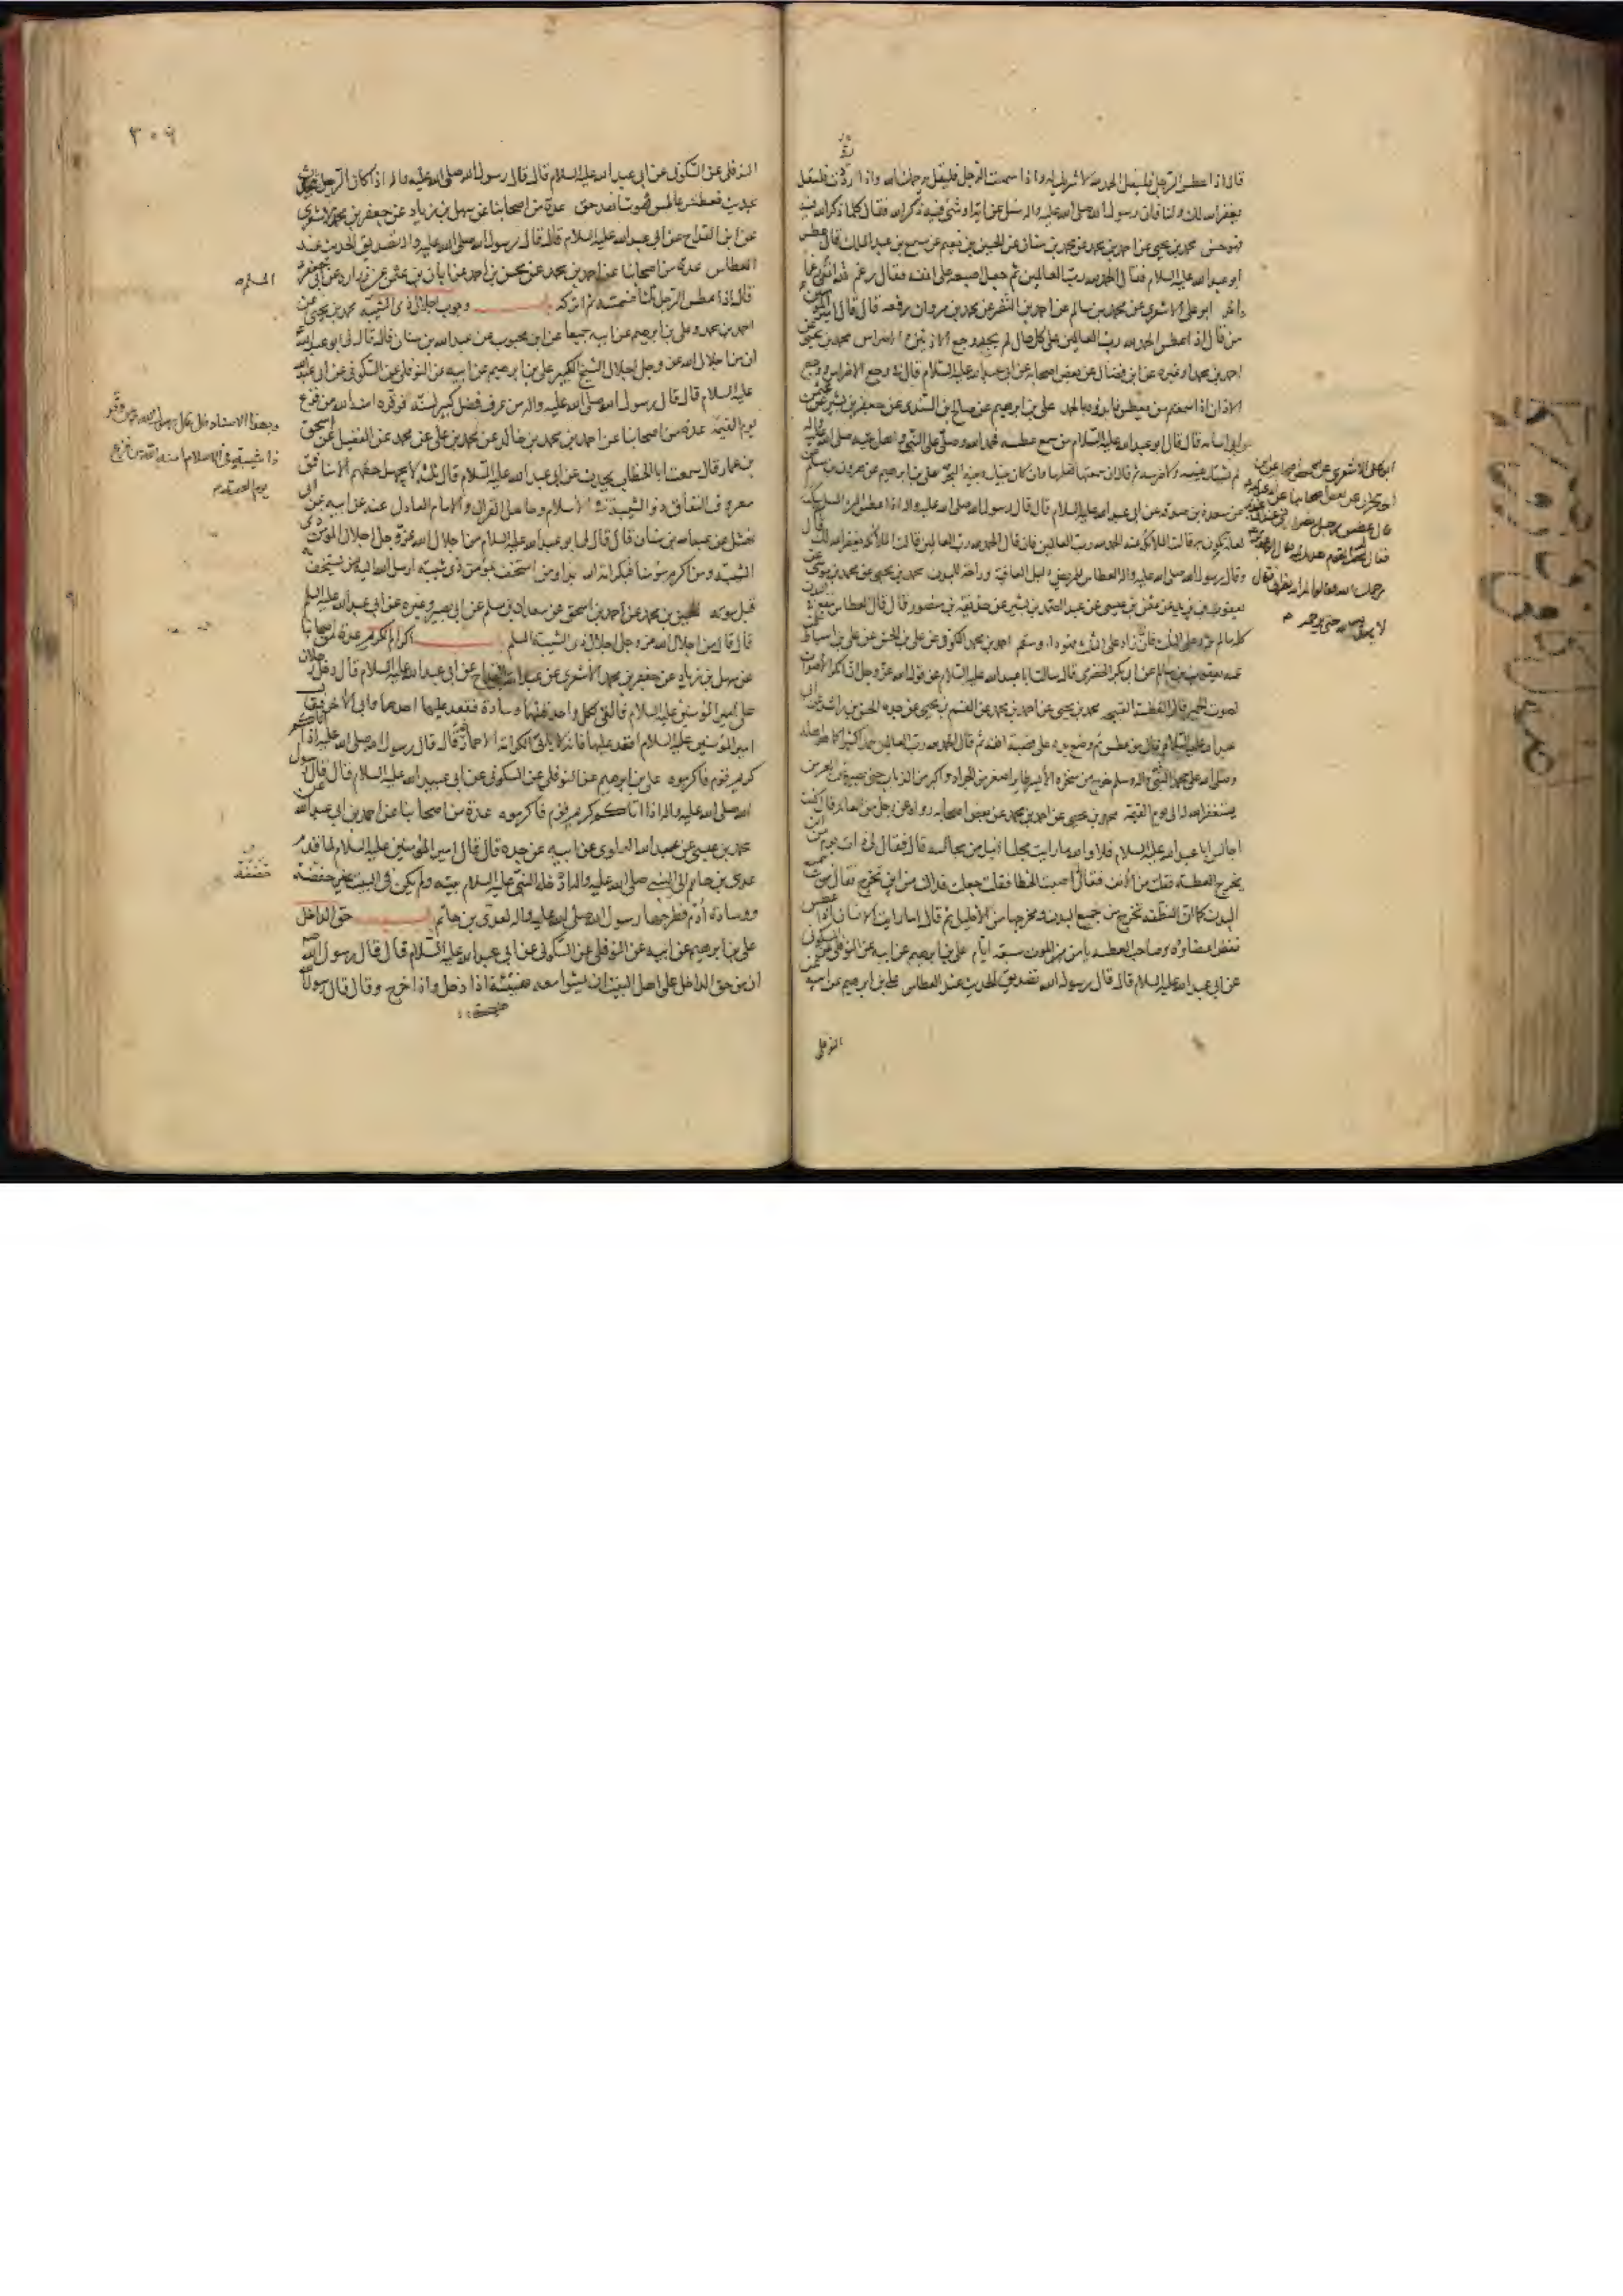 قال اذا عطس الرجل فليقل الحمد لله لا شريك له واذا سمت الرجل فليقل يرحمك الله واذا رددت فليقل
يغفر الله لك ولنا فان رسول الله صلى الله عليه واله سئل عن آية او شئ فيه ذكر الله فقال كلما ذكر الله فيه
فهو حسن محمد بن يحيى عن احمد بن محمد عن محمد بن سنان عن الحسين بن نعيم عن مسمع بن عبد الملك قال عطس
ابو عبد الله عليه السلام فقال الحمد لله رب العالمين ثم جعل اصبعه على انفه فقال رغم انفي لله رغما
داخرا ابو علي الاشعري عن محمد بن سالم عن احمد بن النضر عن محمد بن مروان رفعه قال قال امير المؤمنين
من قال اذا عطس الحمد لله رب العالمين على كل حال لم يجد وجع الاذنين والاضراس محمد بن يحيى عن
احمد بن محمد او غيره عن ابن فضال عن بعض اصحابه عن ابي عبد الله عليه السلام قال في وجع الاضراس ووجع
الاذان اذا سمعتم من يعطس فابدؤه بالحمد علي بن ابرهيم عن صالح بن السندي عن جعفر بن بشير عن
ابي اسامه قال قال ابو عبد الله عليه السلام من سمع عطسة فحمد الله وصلى على النبي واهل بيته صلى الله عليه واله
لم يشتك عينيه ولا ضرسه ثم قال ان سمعتها فقلها وان كان بينك وبينه البحر علي بن ابرهيم عن هرون بن مسلم
عن مسعدة بن صدقه عن ابي عبد الله عليه السلام قال قال رسول الله صلى الله عليه واله اذا عطس المرء المسلم ثم سكت
لعلة تكون به قالت الملائكة عنه الحمد لله رب العالمين فان قال الحمد لله رب العالمين قالت الملائكة يغفر الله لك قال
وقال رسول الله صلى الله عليه واله العطاس للمريض دليل العافية وراحة للبدن محمد بن يحيى عن محمد بن موسى عن
يعقوب بن يزيد عن عثمن بن عيسى عن عبد الصمد بن بشير عن حذيفة بن منصور قال قال العطاس ينفع في البدن
كله ما لم يزد على الثلث فاذا زاد على الثلث فهو داء وسقم احمد بن محمد الكوفي عن علي بن الحسن عن علي بن اسباط عن
عمه يعقوب بن سالم عن ابي بكر الحضرمي قال سالت ابا عبد الله عليه السلام عن قول الله عز وجل ان انكر الاصوات
لصوت الحمير قال العطسة القبيحه محمد بن يحيى عن احمد بن محمد عن القسم بن يحيى عن جده الحسن بن راشد عن ابي
عبد الله عليه السلام قال من عطس ثم وضع يده على قصبة انفه ثم قال الحمد لله رب العالمين حمدا كثيرا كما هو اهله
وصلى الله على محمد النبي واله وسلم خرج من منخره الايسر طاير اصغر من الجراد واكبر من الذباب حتى يصير تحت العرش
يستغفر الله له الى يوم القيمة محمد بن يحيى عن احمد بن محمد عن بعض اصحابه رواه عن رجل من العامة قال كنت
اجالس ابا عبد الله عليه السلام فلا والله ما رايت مجلسا انبل من مجالسه قال فقال لي ذات يوم من اين
يخرج العطسة فقلت من الانف فقال اصبت الخطا فقلت جعلت فداك من اين تخرج فقال من جميع
البدن كما ان النطفة تخرج من جميع البدن ومخرجها من الاحليل ثم قال اما رايت الانسان اذا عطس
نفض اعضاؤه وصاحب العطسة يامن من الموت سبعة ايام علي بن ابرهيم عن ابيه عن النوفلي عن السكوني
عن ابي عبد الله عليه السلام قال قال رسول الله تصديق الحديث عند العطاس علي بن ابرهيم عن ابيه عن
النوفلي
ابو علي الاشعري عن بعض اصحابه عن ابن
ابي نجران عن بعض اصحابنا عن ابي عبد الله
قال عطس رجل نصراني عند ابي عبد الله
فقال له القوم هداك الله فقال ابو عبد الله
يرحمك الله فقالوا له انه نصراني فقال
لا يهديه الله حتى يرحمه
٣٠٩
النوفلي عن السكوني عن ابي عبد الله عليه السلام قال قال رسول الله صلى الله عليه واله اذا كان الرجل يتحدث
بحديث فعطس عاطس فهو شاهد حق عدة من اصحابنا عن سهل بن زياد عن جعفر بن محمد الاشعري
عن ابن القداح عن ابي عبد الله عليه السلام قال قال رسول الله صلى الله عليه واله تصديق الحديث عند
العطاس عدة من اصحابنا عن احمد بن محمد عن محسن بن احمد عن ابان بن عثمن عن زراره عن ابي جعفر
قال اذا عطس الرجل ثلثا فسمته ثم اتركه باب وجوب اجلال ذي الشيبة محمد بن يحيى عن
المسلم
احمد بن محمد وعلي بن ابرهيم عن ابيه جميعا عن ابن محبوب عن عبد الله بن سنان قال قال لي ابو عبد الله
ان من اجلال الله عز وجل اجلال الشيخ الكبير علي بن ابرهيم عن ابيه عن النوفلي عن السكوني عن ابي عبد الله
عليه السلام قال قال رسول الله صلى الله عليه واله من عرف فضل كبير لسنه فوقره امنه الله من فزع
يوم القيمة عدة من اصحابنا عن احمد بن محمد بن خالد عن محمد بن علي عن محمد عن الفضيل عن اسحق
وبهذا الاسناد قال قال رسول الله من وقر
ذا شيبة في الاسلام امنه الله من فزع
يوم القيمة
بن عمار قال سمعت ابا الخطاب يحدث عن ابي عبد الله عليه السلام قال ثلثة لا يجهل حقهم الا منافق
معروف النفاق ذو الشيبة في الاسلام وحامل القران والامام العادل عنه عن ابيه عن ابي
نهشل عن عبد الله بن سنان قال قال لي ابو عبد الله عليه السلام من اجلال الله عز وجل اجلال المؤمن ذي
الشيبة ومن اكرم مؤمنا فبكرامة الله بدا ومن استخف بمؤمن ذي شيبة ارسل الله اليه من يستخف به
قبل موته الحسين بن محمد عن احمد بن اسحق عن سعدان بن مسلم عن ابي بصير وغيره عن ابي عبد الله عليه السلام
قال قال من اجلال الله عز وجل اجلال ذي الشيبة المسلم باب اكرام الكريم عدة من اصحابنا
عن سهل بن زياد عن جعفر بن محمد الاشعري عن عبد الله القداح عن ابي عبد الله عليه السلام قال دخل رجلان
على امير المؤمنين عليه السلام فالقى لكل واحد منهما وسادة فقعد عليها احدهما وابى الاخر فقال
امير المؤمنين عليه السلام اقعد عليها فانه لا يابى الكرامة الا حمار ثم قال قال رسول الله صلى الله عليه اذا اتاكم
كريم قوم فاكرموه علي بن ابرهيم عن النوفلي عن السكوني عن ابي عبد الله عليه السلام قال قال رسول
الله صلى الله عليه واله اذا اتاكم كريم قوم فاكرموه عدة من اصحابنا عن احمد بن ابي عبد الله عن
محمد بن عيسى عن عبد الله العلوي عن ابيه عن جده قال قال امير المؤمنين عليه السلام لما قدم
عدي بن حاتم الى النبي صلى الله عليه واله ادخله النبي عليه السلام بيته ولم يكن في البيت غير خصفة
خصفة
ووسادة أدم فطرحها رسول الله صلى الله عليه واله لعدي بن حاتم باب حق الداخل
علي بن ابرهيم عن ابيه عن النوفلي عن السكوني عن ابي عبد الله عليه السلام قال قال رسول الله
ان من حق الداخل على اهل البيت ان يمشوا معه هنيئة اذا دخل واذا خرج وقال قال رسول الله